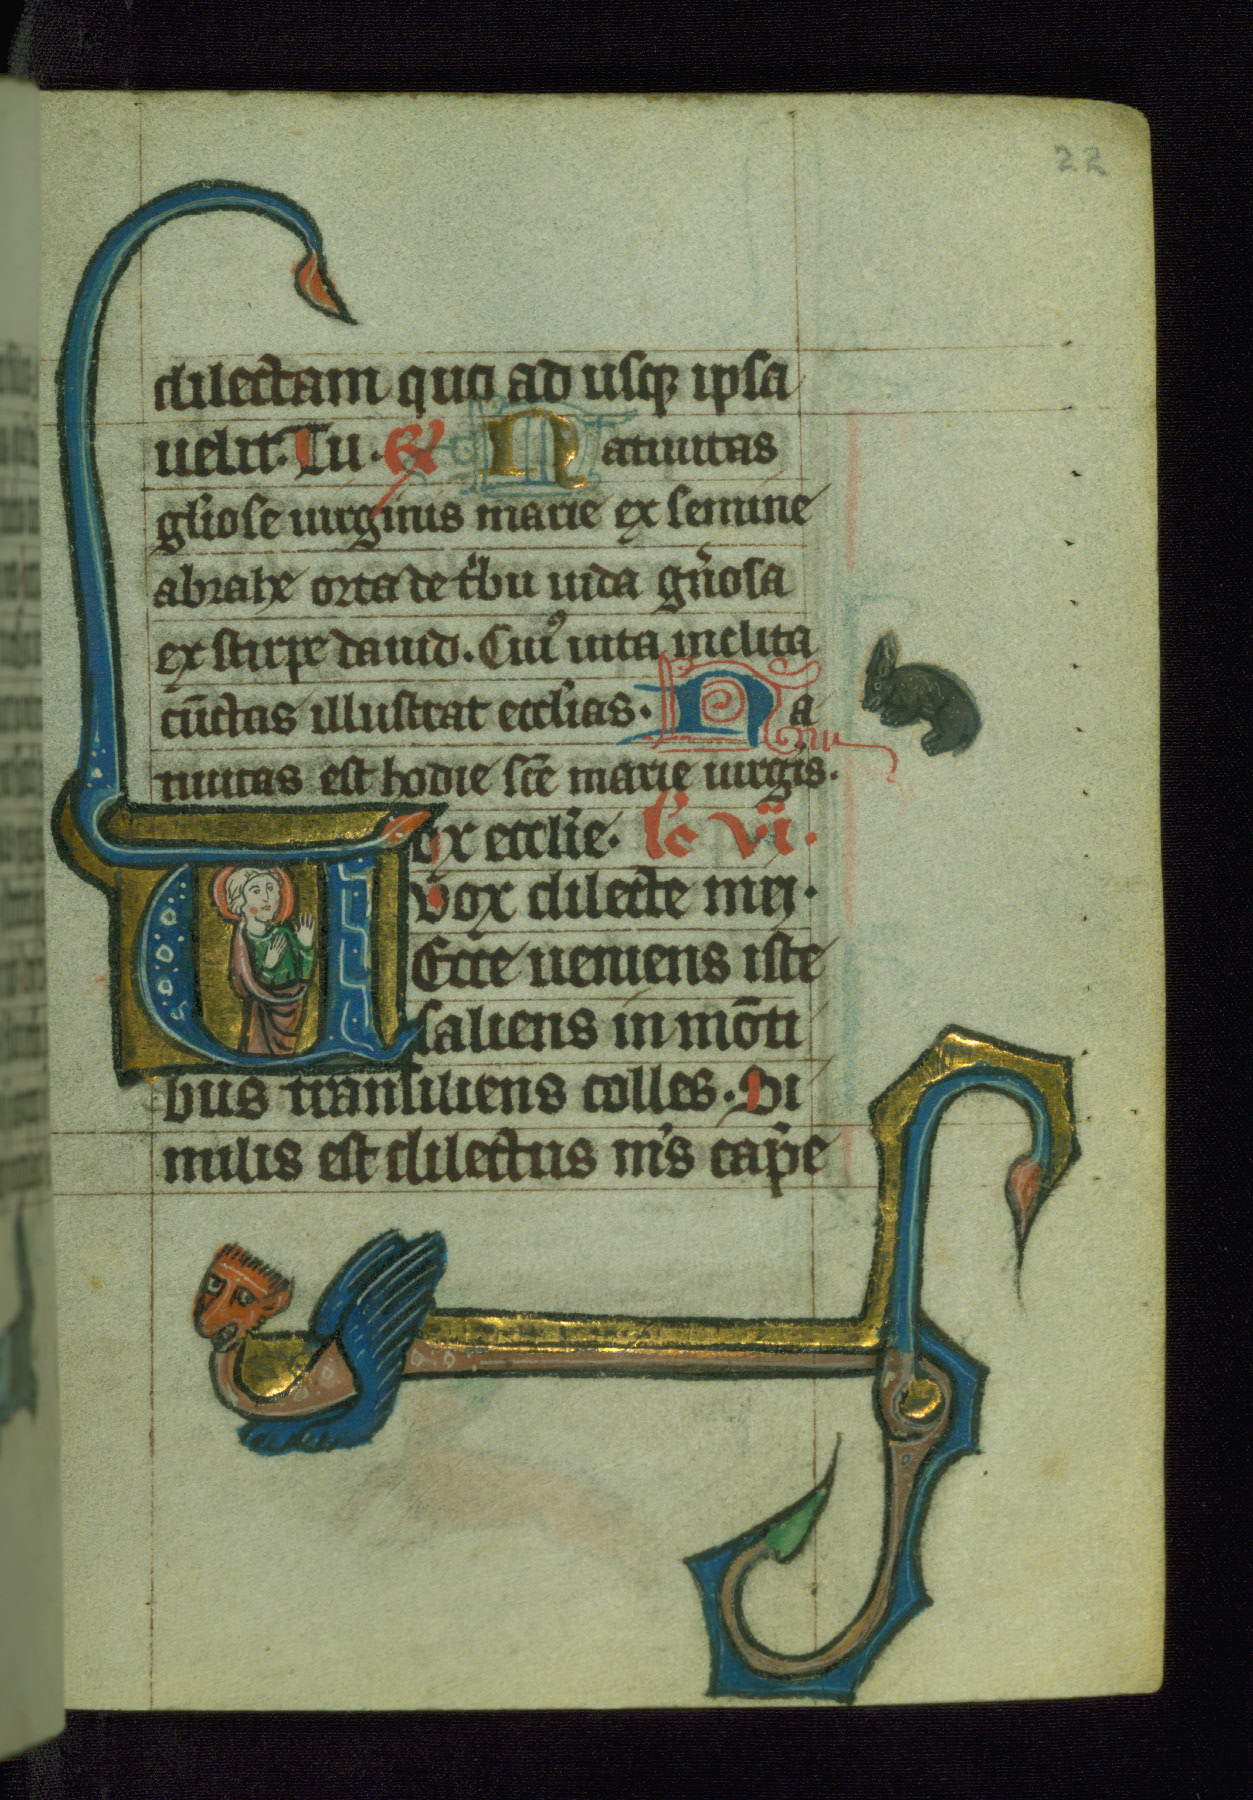 22
dilectam quo ad usqꝫ ipsa
uelit. Tu. R̸ Natiuitas
gl'iose uirginis marie ex semine
abrahe orta de t'bu iuda gn̄osa
ex stirpe dauid. Cuiꝰ uita inclita
cūctas illustrat eccl'ias. Na
tiuitas est hodie sc̄e marie uirg̃is.
ox eccl'ie. lc̃ vii.
Vox dilecte mei.
Ecce ueniens iste
saliens in mōti
bus transiliens colles. Si
milis est dilectus m's cap̃e